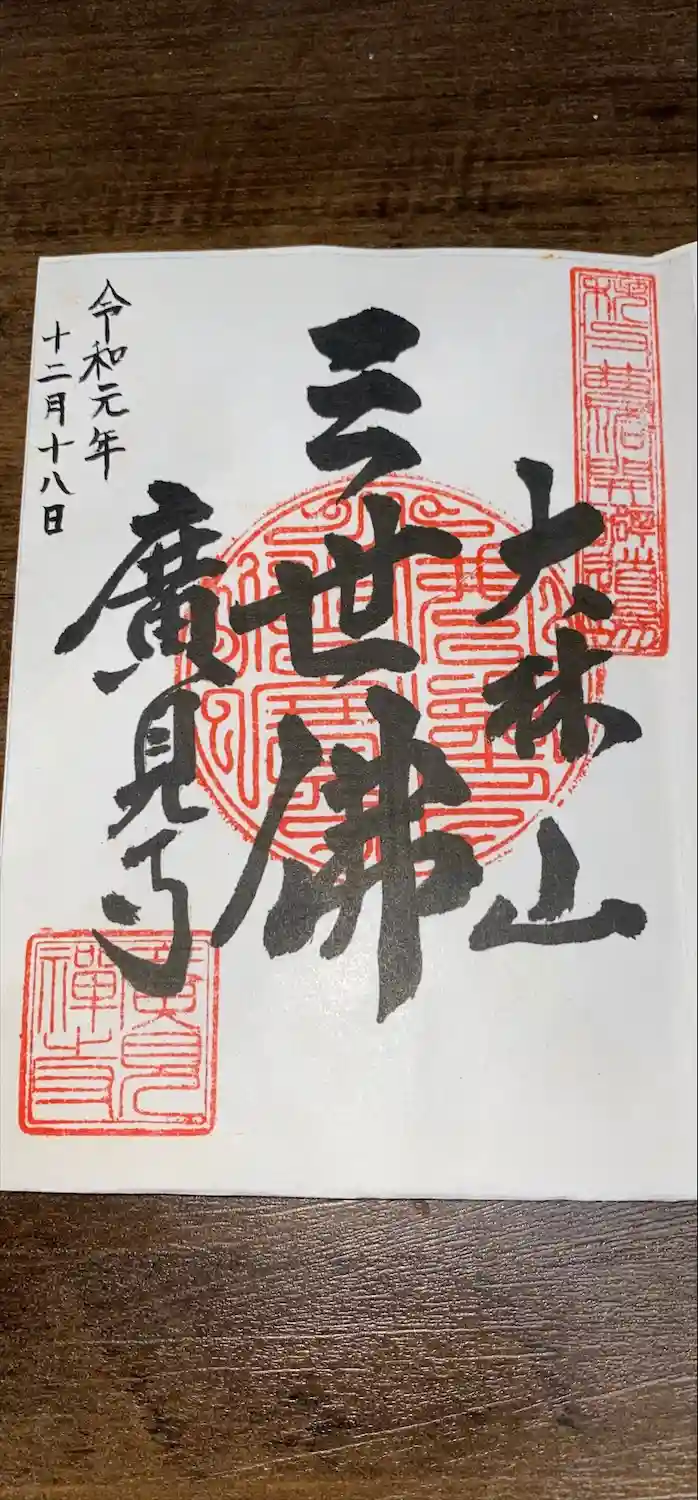 大林山
三世佛
廣見寺
令和元年
十二月十八日
廣見
禪寺